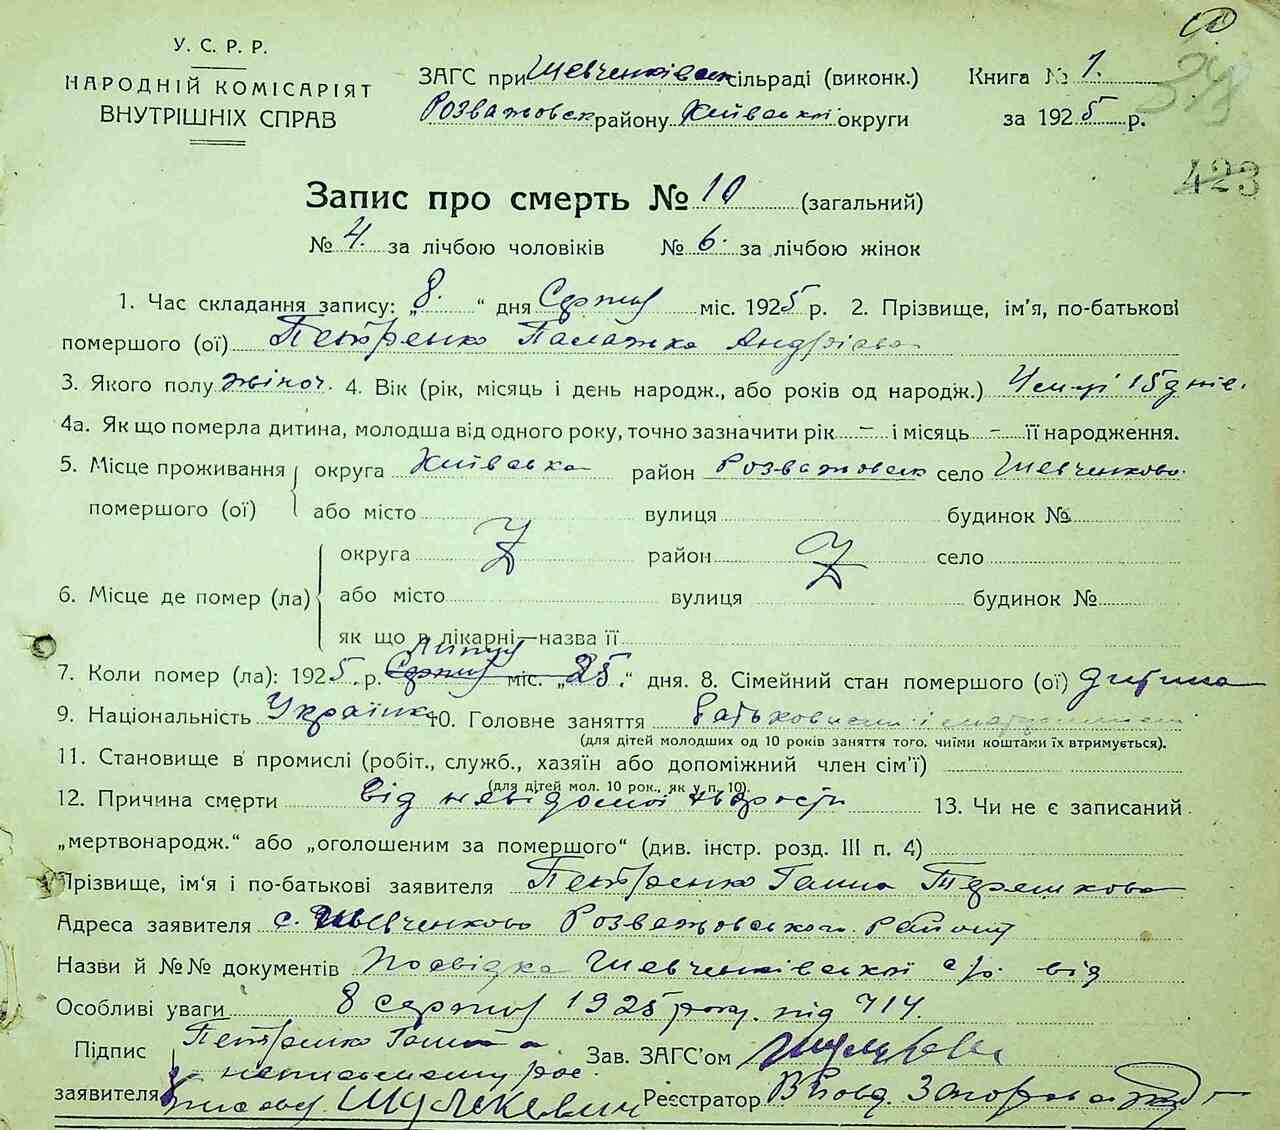 У. С. Р. Р.
НАРОДНІЙ КОМІСАРІЯТ
ВНУТРІШНІХ СПРАВ
ЗАГС при Шевченківск сільраді (виконк.)
Розважовск району Київської округи
Книга № 1.
за 1925 р.
423
Запис про смерть № 10 (загальний)
№ 4. за лічбою чоловіків № 6. за лічбою жінок
1. Час складання запису: „8." дня Серпня міс. 1925 р. 2. Прізвище, ім'я, по-батькові
помершого (ої) Петренко Палажка Андріева
3. Якого полу жіноч. 4. Вік (рік, місяць і день народж., або років од народж.) 15 днів.
4а. Як що померла дитина, молодша від одного року, точно зазначити рік — і місяць — її народження.
5. Місце проживання помершого (ої) округа Київська район Розважовск село Шевченково.
або місто вулиця будинок №
6. Місце де помер (ла) округа район село
або місто вулиця будинок №
як що в лікарні—назва її
Липня
7. Коли помер (ла): 1925 р. Серпня міс. „25." дня. 8. Сімейний стан помершого (ої) дитина
9. Національність Українка 10. Головне заняття
(для дітей молодших од 10 років заняття того, чиїми коштами їх втримується).
11. Становище в промислі (робіт., служб., хазяїн або допоміжний член сім'ї)
(для дітей мол. 10 рок., як у п. 10).
12. Причина смерти від невідомої хворости 13. Чи не є записаний
„мертвонародж." або „оголошеним за помершого" (див. інстр. розд. III п. 4)
Прізвище, ім'я і по-батькові заявителя Петренко Ганна Терешкова
Адреса заявителя с. Шевченково Розважовського району
Назви й №№ документів Посвідка Шевченківської с/р. від
Особливі уваги 8 серпня 1925 року. під 714.
Підпис заявителя Петренко Ганна а
неписьменну рос.
Шулькевич
Зав. ЗАГС'ом
Реєстратор